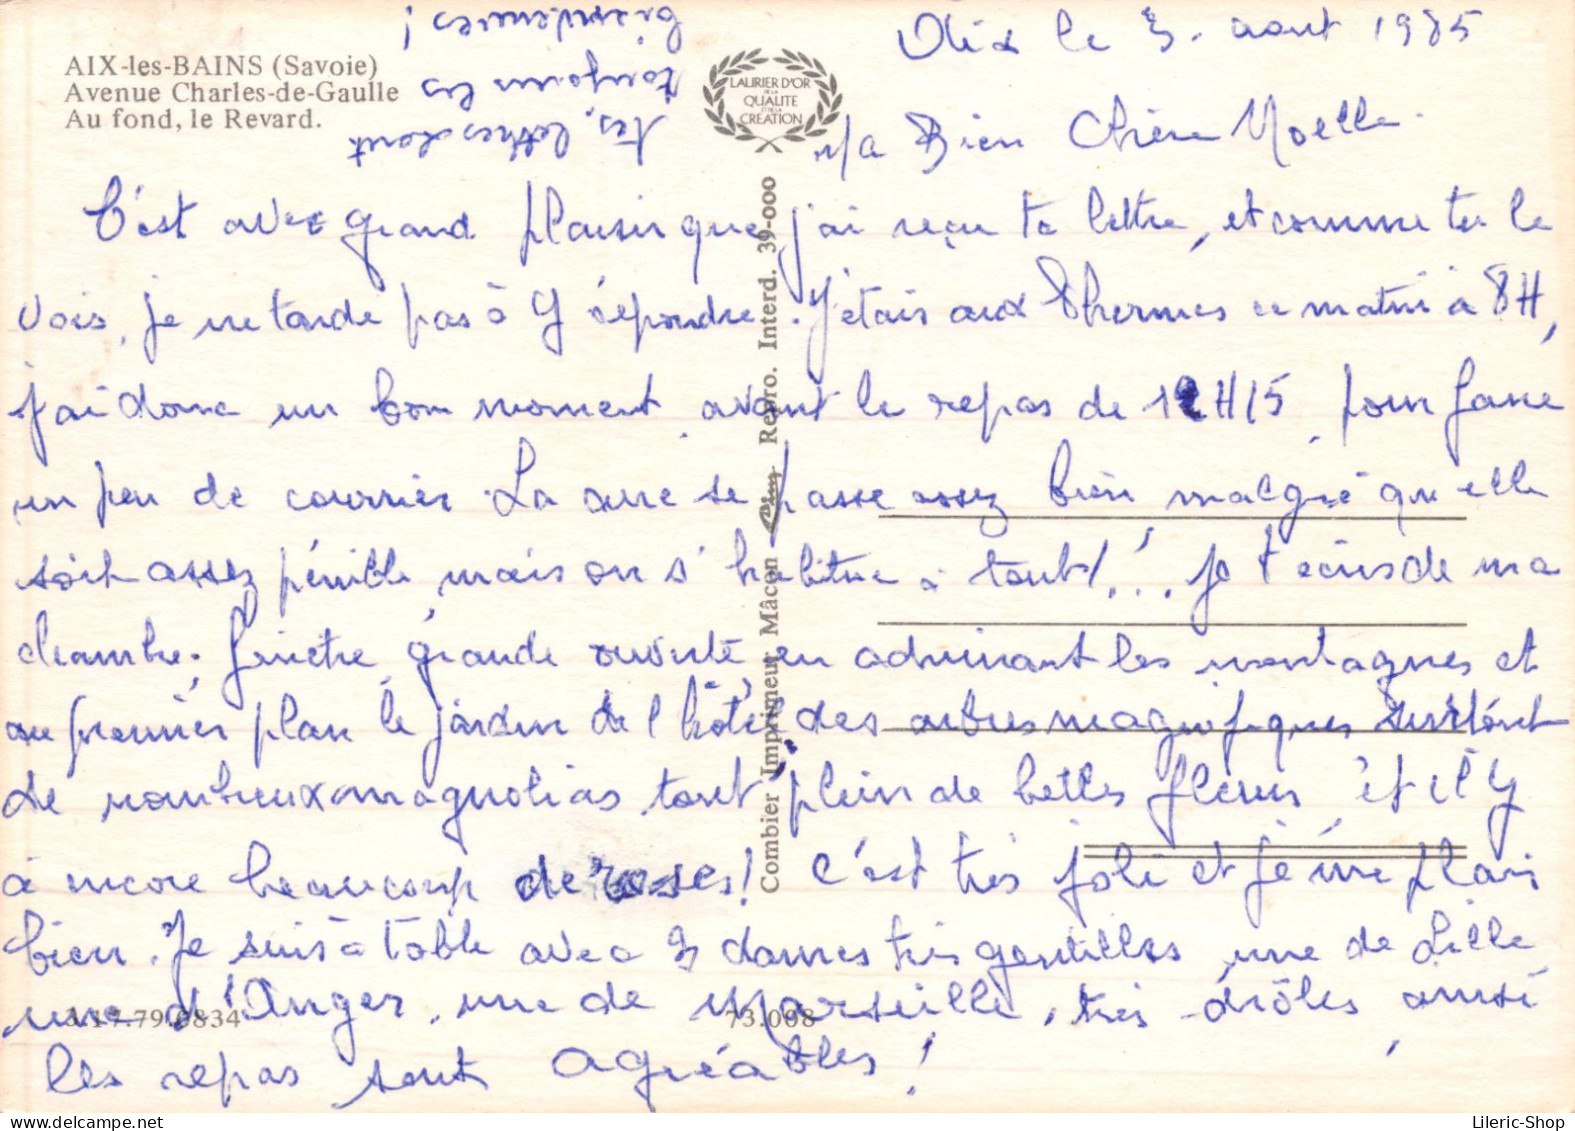 AIX-les-BAINS (Savoie)
Avenue Charles-de-Gaulle
Au fond, le Revard.
LAURIER D'OR
DE LA
QUALITE
ET DE LA
CREATION
Combier Imprimeur Mâcon Repro. Interd. 39-000
Aix le 3. aout 1985
Ma Bien Chère Noelle.
C'est avec grand plaisir que j'ai reçu ta lettre, et comme tu le
vois, je ne tarde pas à y répondre. J'étais aux Thermes ce matin à 8H,
j'ai donc un bon moment avant le repas de 12H15 pour faire
un peu de courrier. La cure se passe assez bien malgré qu'elle
soit assez pénible, mais on s'habitue à tout!... je t'écris de ma
chambre. fenêtre grande ouverte en admirant les montagnes et
au premier plan le jardin de l'hôtel des arbres magnifiques surtout
de nombreux magnolias tout plein de belles fleurs et il y
a encore beaucoup de roses! c'est très joli et je m'e plais
bien. Je suis à table avec 3 dames très gentilles, une de Lille
une d'Anger, une de Marseille, très drôles, aussi
les repas sont agréables!
3.17.79.0834
73.008
Tes lettres sont
toujours les
bienvenues !